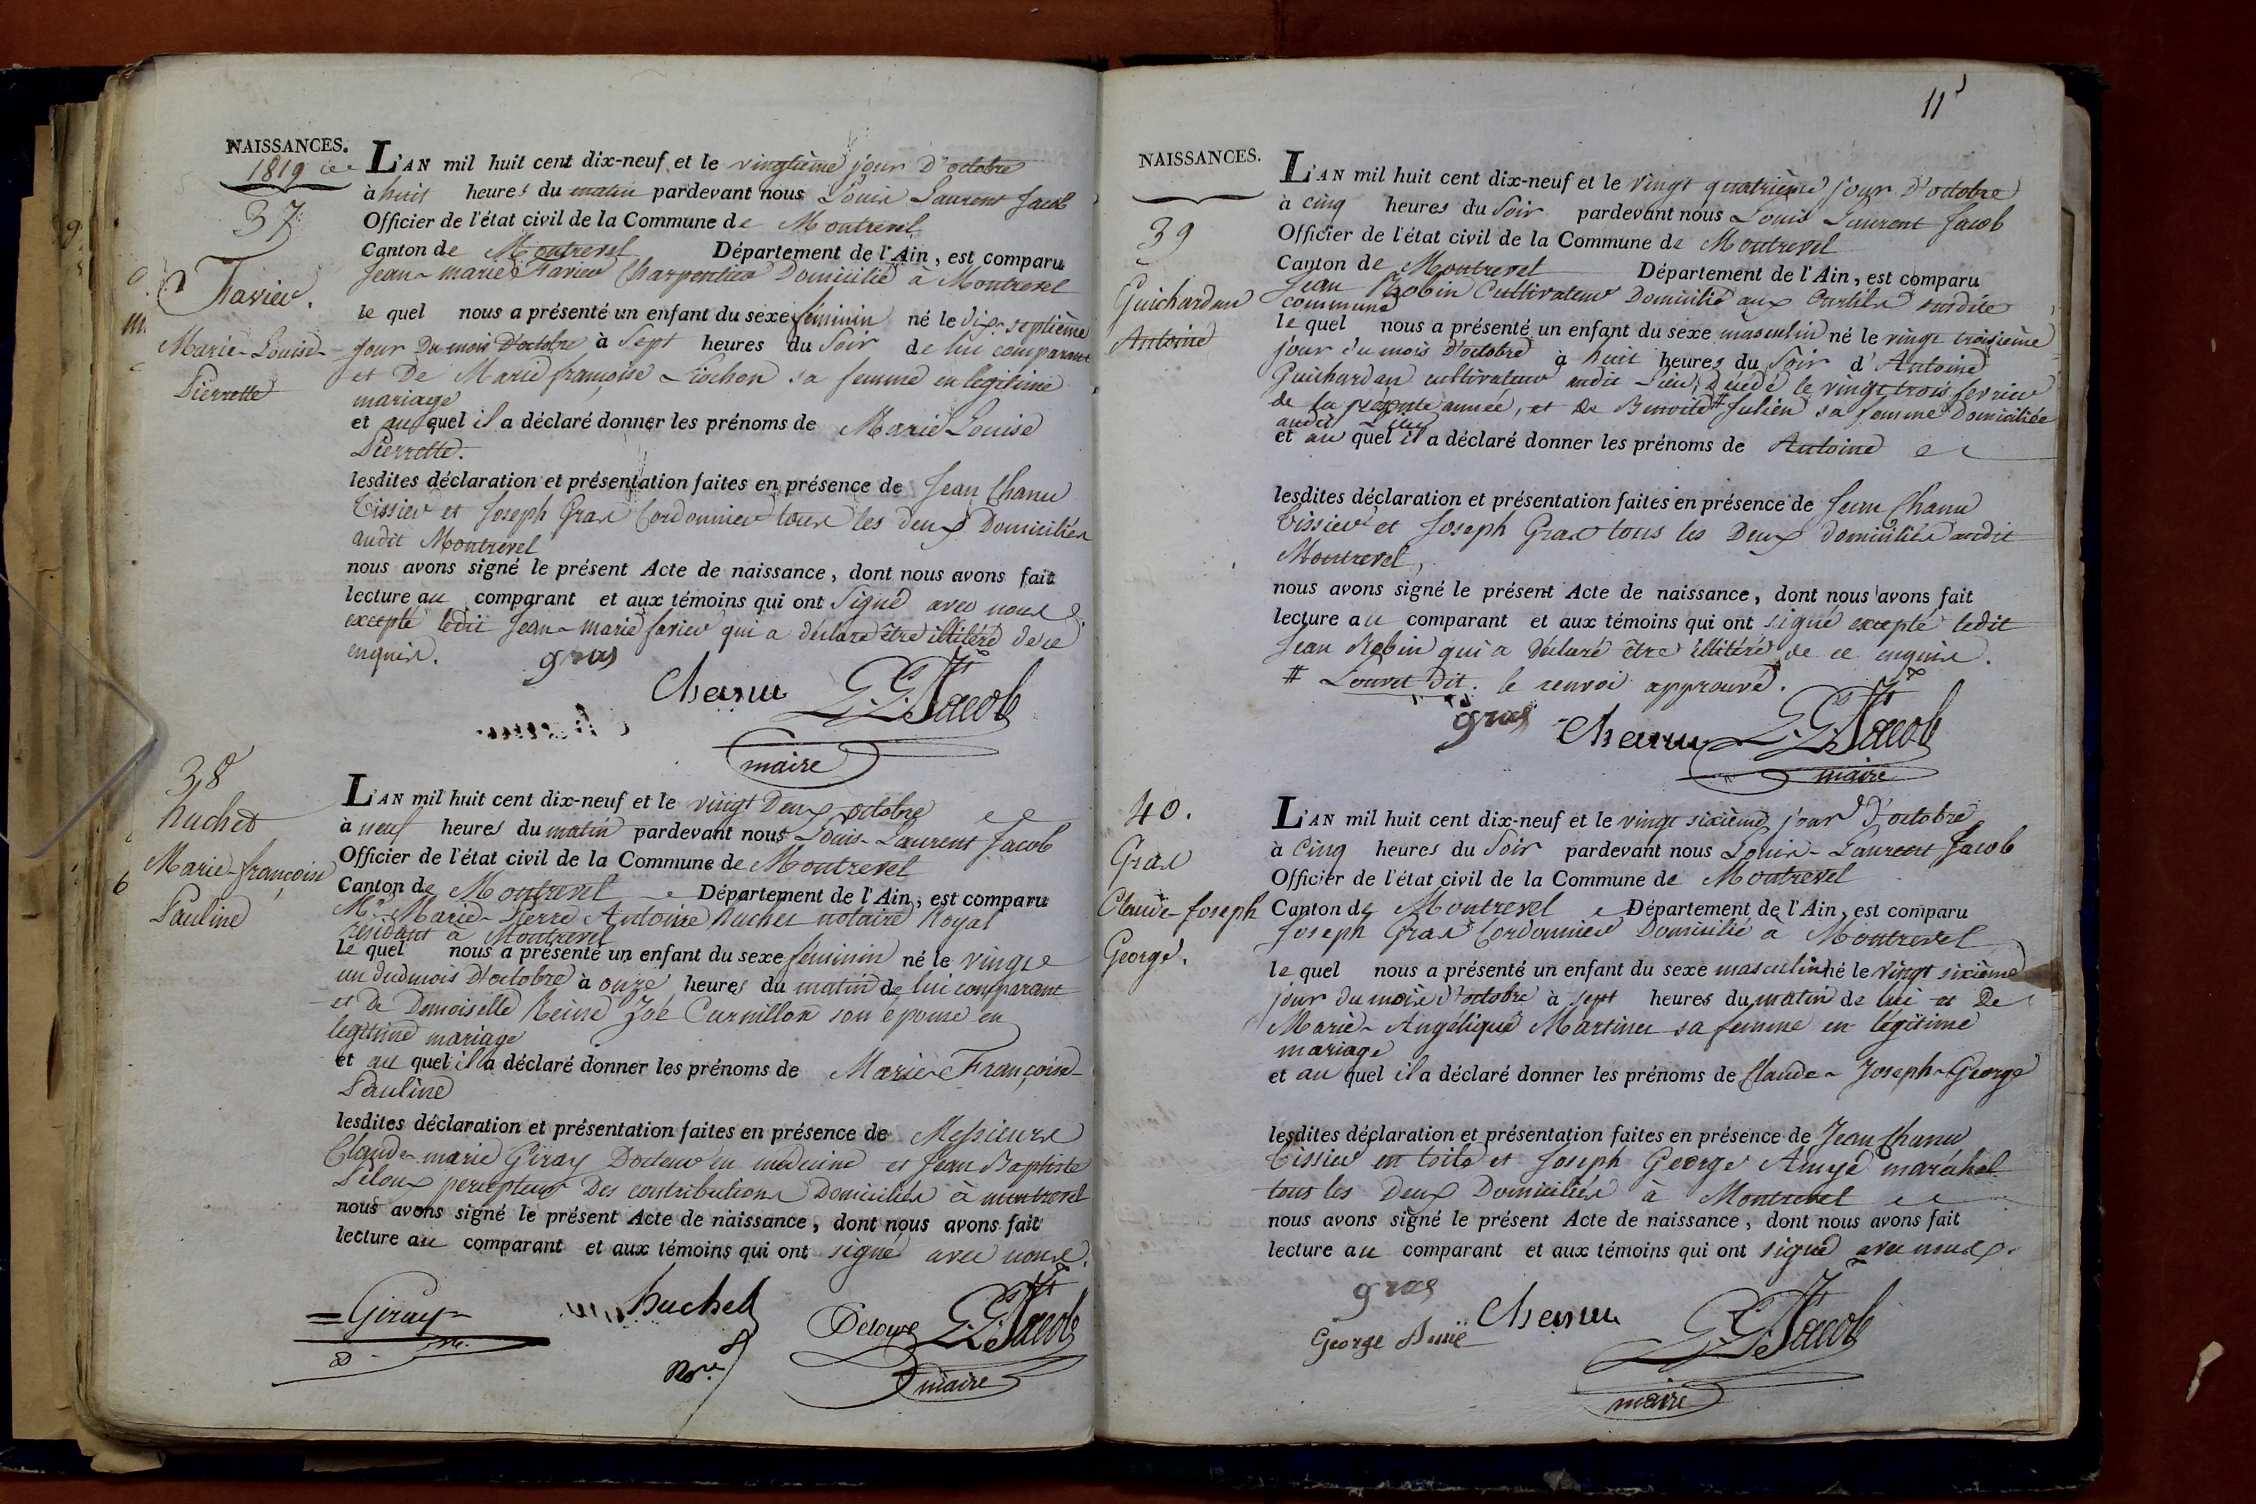 NAISSANCES.
1819
37
Favier.
Marie-Louise-
Pierrette
L'AN mil huit cent dix-neuf et le vingtième jour D'octobre
à huit heures du matin pardevant nous Louis Laurent Jacob
Officier de l'état civil de la Commune de Montrevel
Canton de Montrevel Département de l'Ain, est comparu
Jean-marie Favier Charpentier Domicilié à Montrevel
le quel nous a présenté un enfant du sexe féminin né le dix-septième
jour Du mois D'octobre à Sept heures du Soir de lui comparant
et De Marie françoise Liochon sa femme en legitime
mariage
et au quel il a déclaré donner les prénoms de Marie Louise
Pierrette.
lesdites déclaration et présentation faites en présence de Jean Chanu
Tissier et Joseph Gras Cordonnier tous les deux Domiciliés
audit Montrevel
nous avons signé le présent Acte de naissance, dont nous avons fait
lecture au comparant et aux témoins qui ont Signé avec nous
excepté ledit Jean-marie favier qui a déclaré être illitéré de ce
enquis.
gras
Chanu L. L. Jacob
maire
38
huchet
Marie-françoise
Pauline
L'AN mil huit cent dix-neuf et le vingt Deux octobre
à neuf heures du matin pardevant nous Louis-Laurent Jacob
Officier de l'état civil de la Commune de Montrevel
Canton de Montrevel Département de l'Ain, est comparu
Mr. Marie-Pierre Antoine huchet notaire Royal
résidant à Montrevel
le quel nous a présenté un enfant du sexe féminin né le vingt
un dudmois D'octobre à onze heures du matin de lui comparant
et de Demoiselle Reine Zoé Curnillon son épouse en
legitime mariage
et au quel il a déclaré donner les prénoms de Marie Françoise
Pauline
lesdites déclaration et présentation faites en présence de Messieurs
Claude-marie Giray Docteur en médecine et Jean Baptiste
Peloux percepteur Des contributions Domiciliés à montrevel
nous avons signé le présent Acte de naissance, dont nous avons fait
lecture au comparant et aux témoins qui ont signé avec nous.
Giray huchet Peloux L. L. Jacob
maire
11
NAISSANCES.
39
Guichardan
Antoine
L'AN mil huit cent dix-neuf et le vingt quatrième jour D'octobre
à cinq heures du Soir pardevant nous Louis Laurent Jacob
Officier de l'état civil de la Commune de Montrevel
Canton de Montrevel Département de l'Ain, est comparu
Jean Robin Cultivateur Domicilié aux susdite
commune
le quel nous a présenté un enfant du sexe masculin né le vingt troisième
jour du mois D'octobre à huit heures du Soir d'Antoine
Guichardan cultivateur audit Lieu, Décédé le vingt trois fevrier
de la présente année, et de Benoite # Julien sa femme Domiciliée
audit Lieu
et au quel il a déclaré donner les prénoms de Antoine
lesdites déclaration et présentation faites en présence de Jean Chanu
Tissier et Joseph Gras tous les Deux domiciliés audit
Montrevel,
nous avons signé le présent Acte de naissance, dont nous avons fait
lecture au comparant et aux témoins qui ont signé excepté ledit
Jean Robin qui a déclaré être illitéré de ce enquis.
# Louvet dit. le renvoi approuvé.
gras Chanu L. L. Jacob
maire
40.
Gras
Claude-Joseph
George.
L'AN mil huit cent dix-neuf et le vingt sixième jour D'octobre
à Cinq heures du Soir pardevant nous Louis-Laurent Jacob
Officier de l'état civil de la Commune de Montrevel
Canton de Montrevel Département de l'Ain, est comparu
Joseph Gras Cordonnier Domicilié à Montrevel
le quel nous a présenté un enfant du sexe masculin né le vingt sixième
jour du mois D'octobre à sept heures du matin de lui et De
Marie-Angélique Martinet sa femme en légitime
mariage
et au quel il a déclaré donner les prénoms de Claude-Joseph-George
lesdites déclaration et présentation faites en présence de Jean Chanu
Tissier en toile et Joseph George maréchal
tous les Deux Domiciliés à Montrevel
nous avons signé le présent Acte de naissance, dont nous avons fait
lecture au comparant et aux témoins qui ont signé avec nous.
gras
George Chanu L. L. Jacob
maire